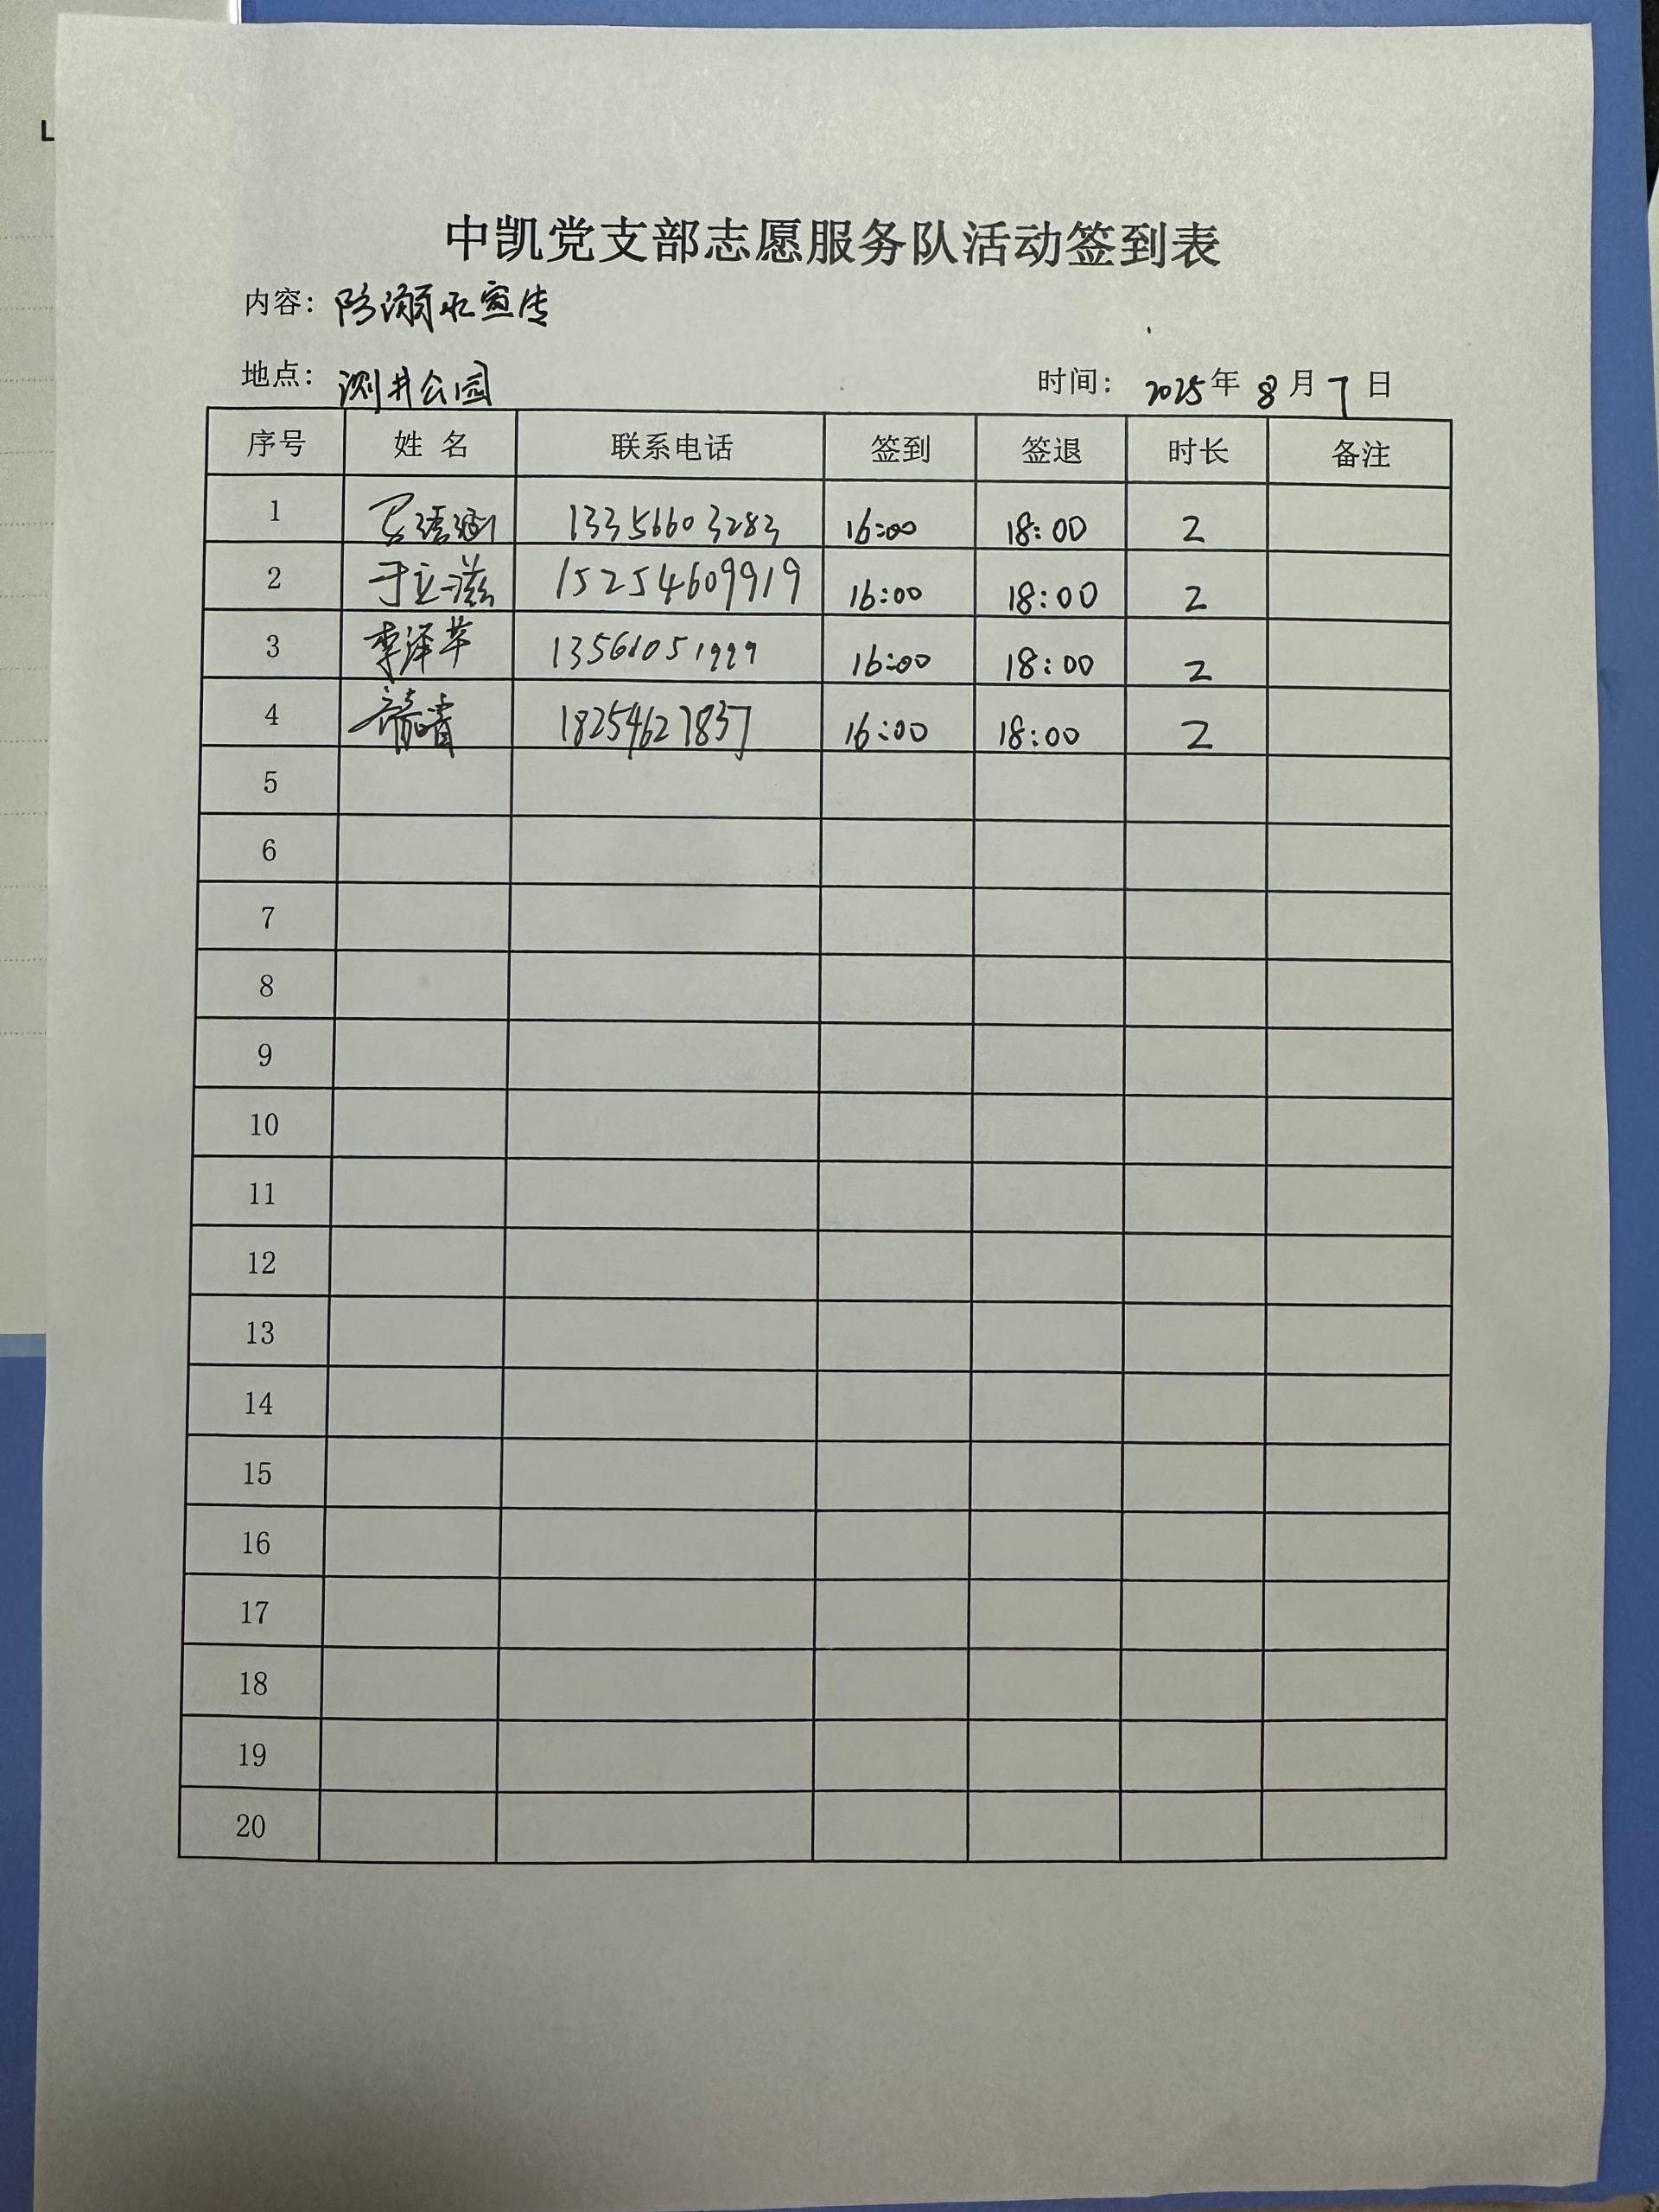 L
中凯党支部志愿服务队活动签到表
内容：防溺水宣传
地点：测井公园 时间：2025年8月7日
序号 姓名 联系电话 签到 签退 时长 备注
1 13356603283 16:00 18:00 2
2 于立滋 15254609919 16:00 18:00 2
3 李泽苹 13561051999 16:00 18:00 2
4 18254627837 16:00 18:00 2
5
6
7
8
9
10
11
12
13
14
15
16
17
18
19
20